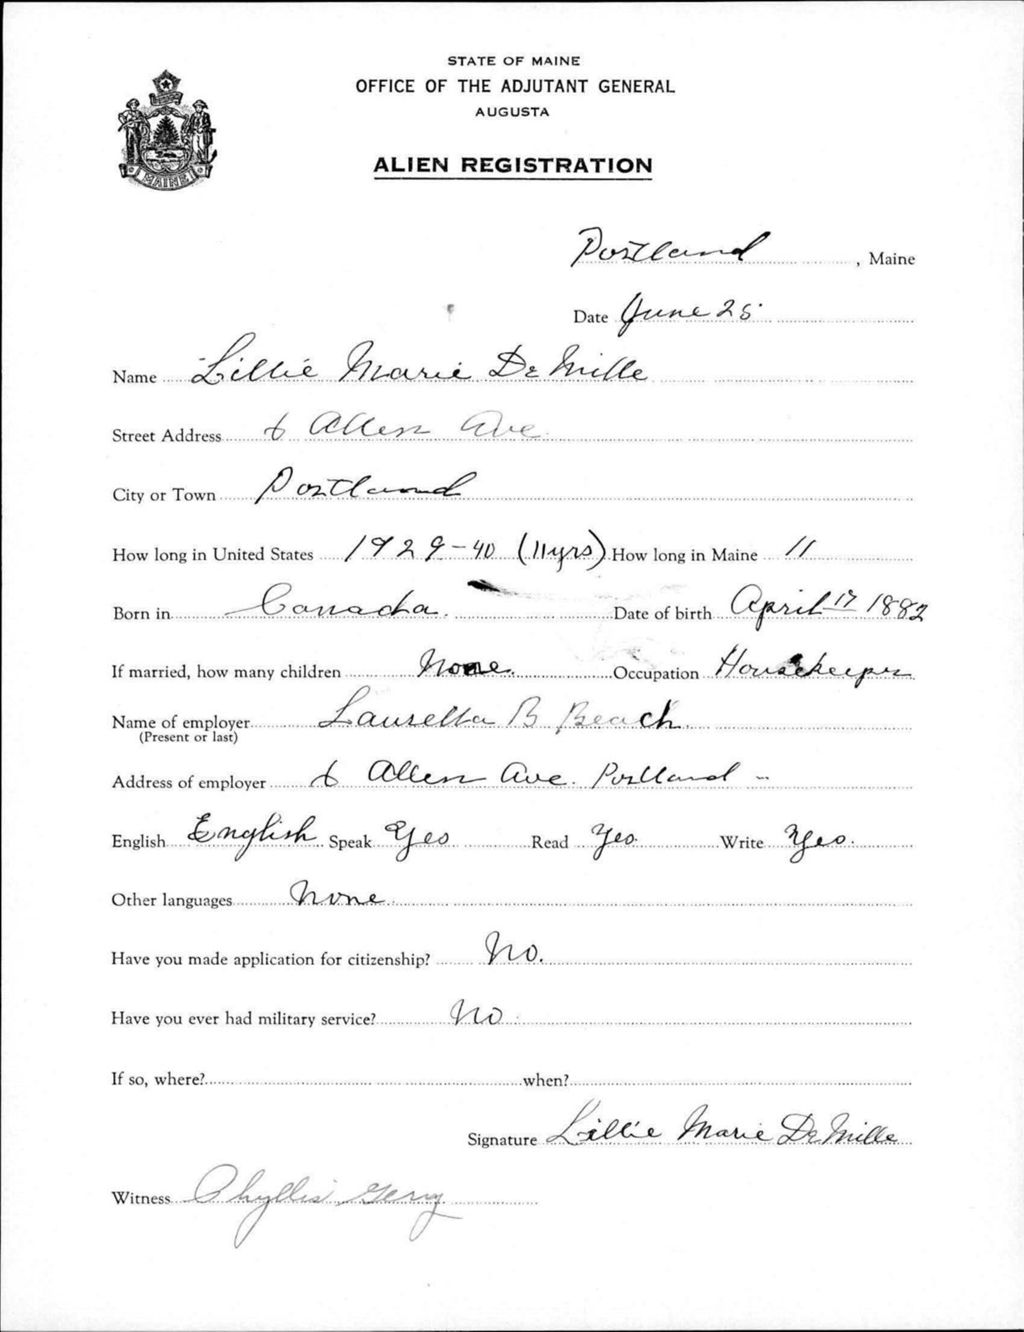 STATE OF MAINE
OFFICE OF THE ADJUTANT GENERAL
AUGUSTA
ALIEN REGISTRATION
MAINE
Portland, Maine
Date June 25
Name Lillie Marie DeMille
Street Address 6 Allen Ave
City or Town Portland
How long in United States 1929-40 (11yrs) How long in Maine 11
Born in Canada. Date of birth April 17 1882
If married, how many children None. Occupation Housekeeper
Name of employer Lauretta B Beach
(Present or last)
Address of employer 6 Allen Ave. Portland -
English English Speak Yes Read Yes. Write Yes.
Other languages None
Have you made application for citizenship? No.
Have you ever had military service? No
If so, where? when?
Signature Lillie Marie DeMille
Witness Phyllis Gerry